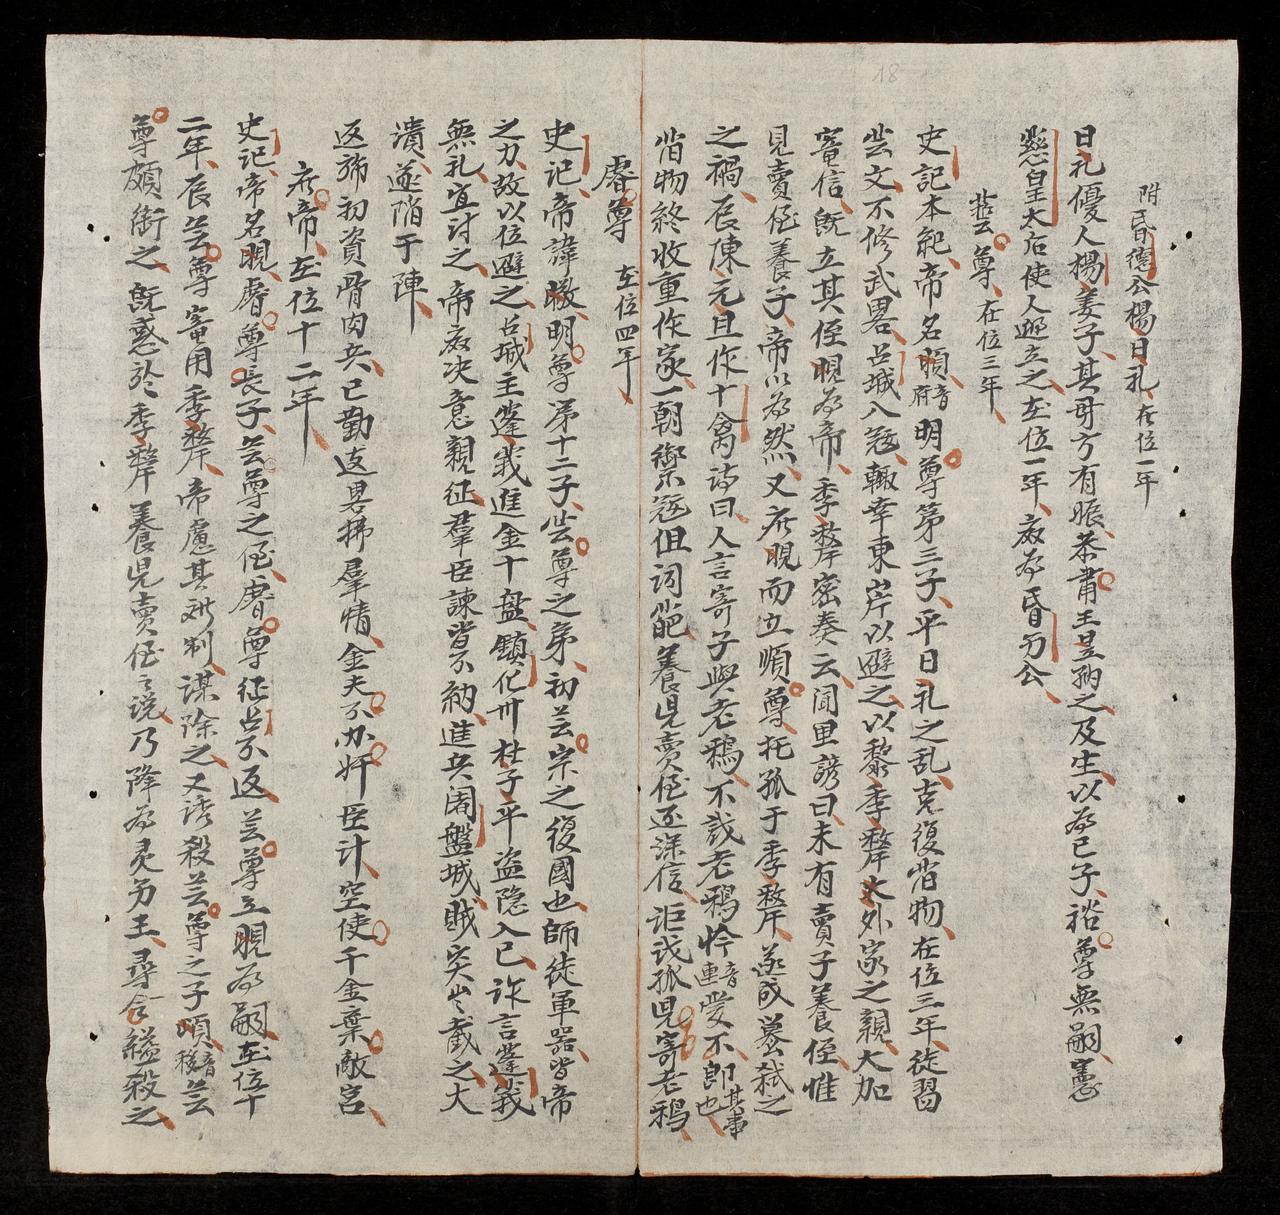 附昏德公楊日礼在位一年
日礼優人楊姜子其母方有娠恭肅王昱納之及生以為己子裕尊無嗣憲
慈皇太后使人迎立之在位一年廢為昏公
藝尊在位三年
史記本紀帝名頫音府明尊第三子平日礼之乱克復旧物在位三年徒習
文不修武畧占城入寇輙幸東岸以避之以黎季犛太外家之親大加
寵信既立其侄晛為帝季犛密奏云聞里諺曰未有賣子養侄惟
見賣侄養子帝以為然又废晛而立順尊托孤于季犛遂成簒弑之
之禍辰陳元旦作十禽詩曰人言寄子與老鴉不哉老鴉怜音連愛不即其事也
旧物終收重作家一朝禦寇但詞葩養児賣侄还深信詎哉孤児寄老鴉
睿尊在位四年
史記帝諱曔明尊弟十二子尊之弟初芸宗之復國也師徒軍器皆帝
之力故以位避之占城主蓬峩進金十盘鎮化州杜子平盗隐入己詐言蓬峩
無礼宜討之帝友决意親征羣臣諫皆不納進兵闍盤城賊突出截之大
潰遂陷于陣
返旆初資骨肉兵已勤返畧拂羣情金夫不办奸臣計空使千金棄敵宮
废帝在位十二年
史記帝名晛睿尊長子芸尊之侄睿尊征占不返芸尊立晛為嗣在位十
二年辰芸尊寵用季犛帝慮其难制謀除之又誘殺芸尊之子𩔗音穆芸
尊頗銜之既惑於季犛養児賣侄之説乃降為灵王尋令縊殺之